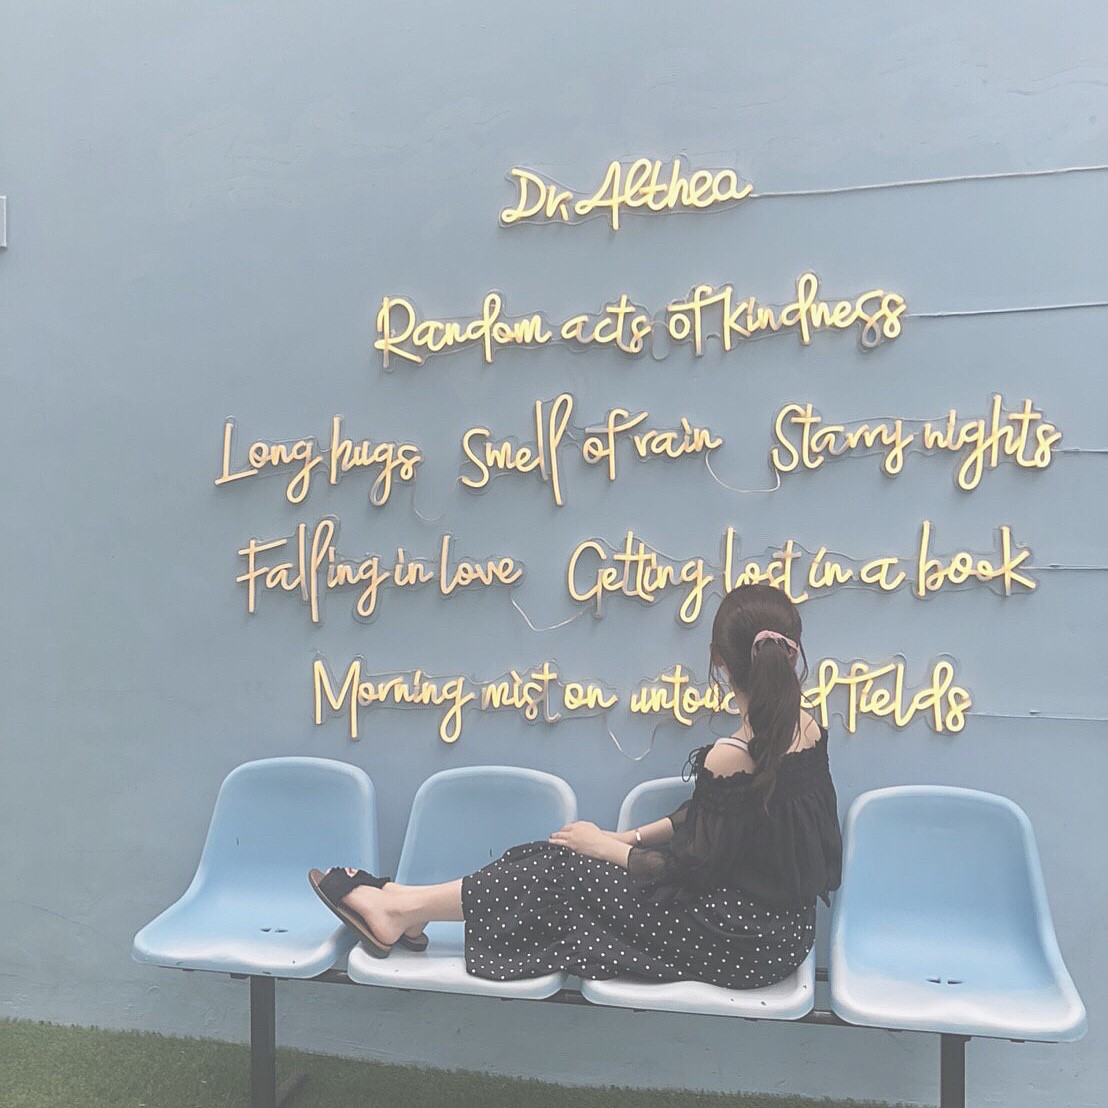 Dr. Althea
Random acts of kindness
Long hugs Smell of rain Starry nights
Falling in love Getting lost in a book
Morning mist on untouched fields